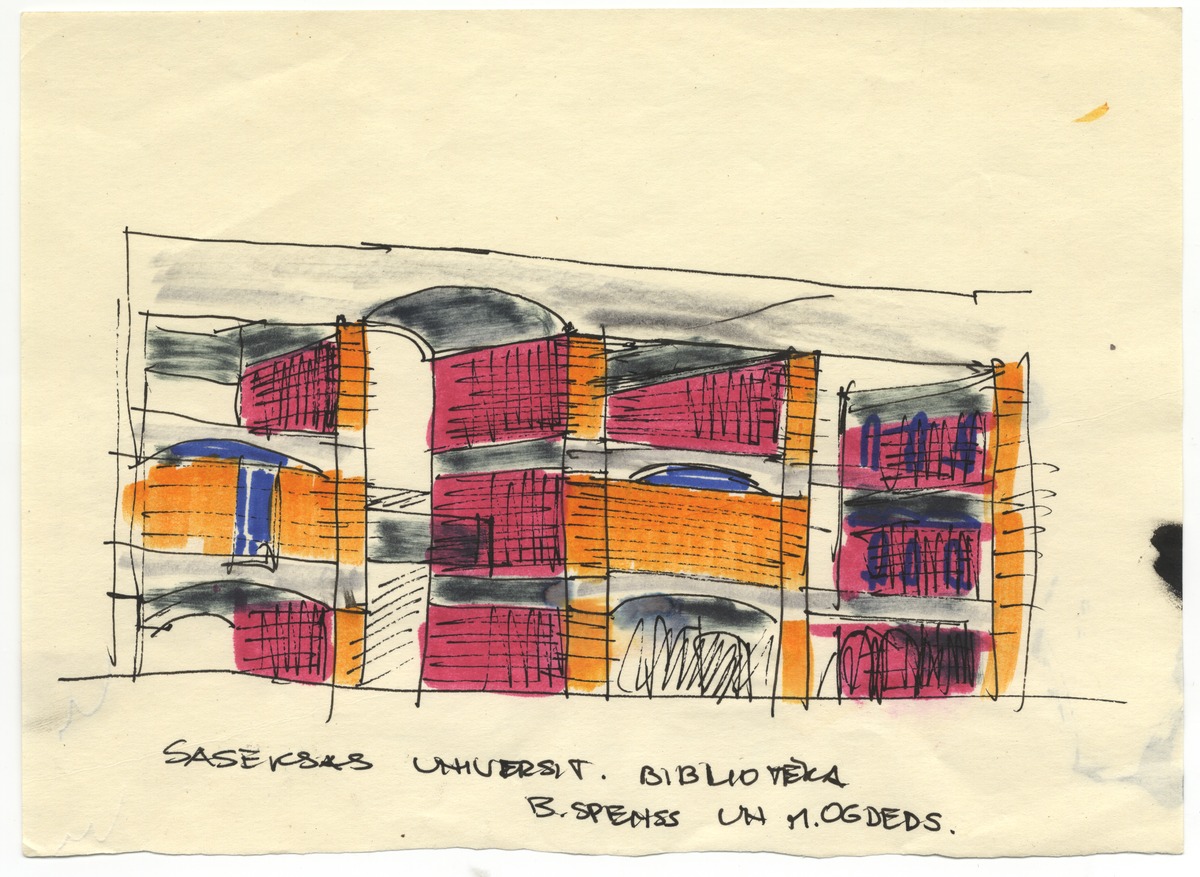 SASEKSAS UNIVERSIT. BIBLIOTĒKA
B. SPENSS UN M. OGDEDS.